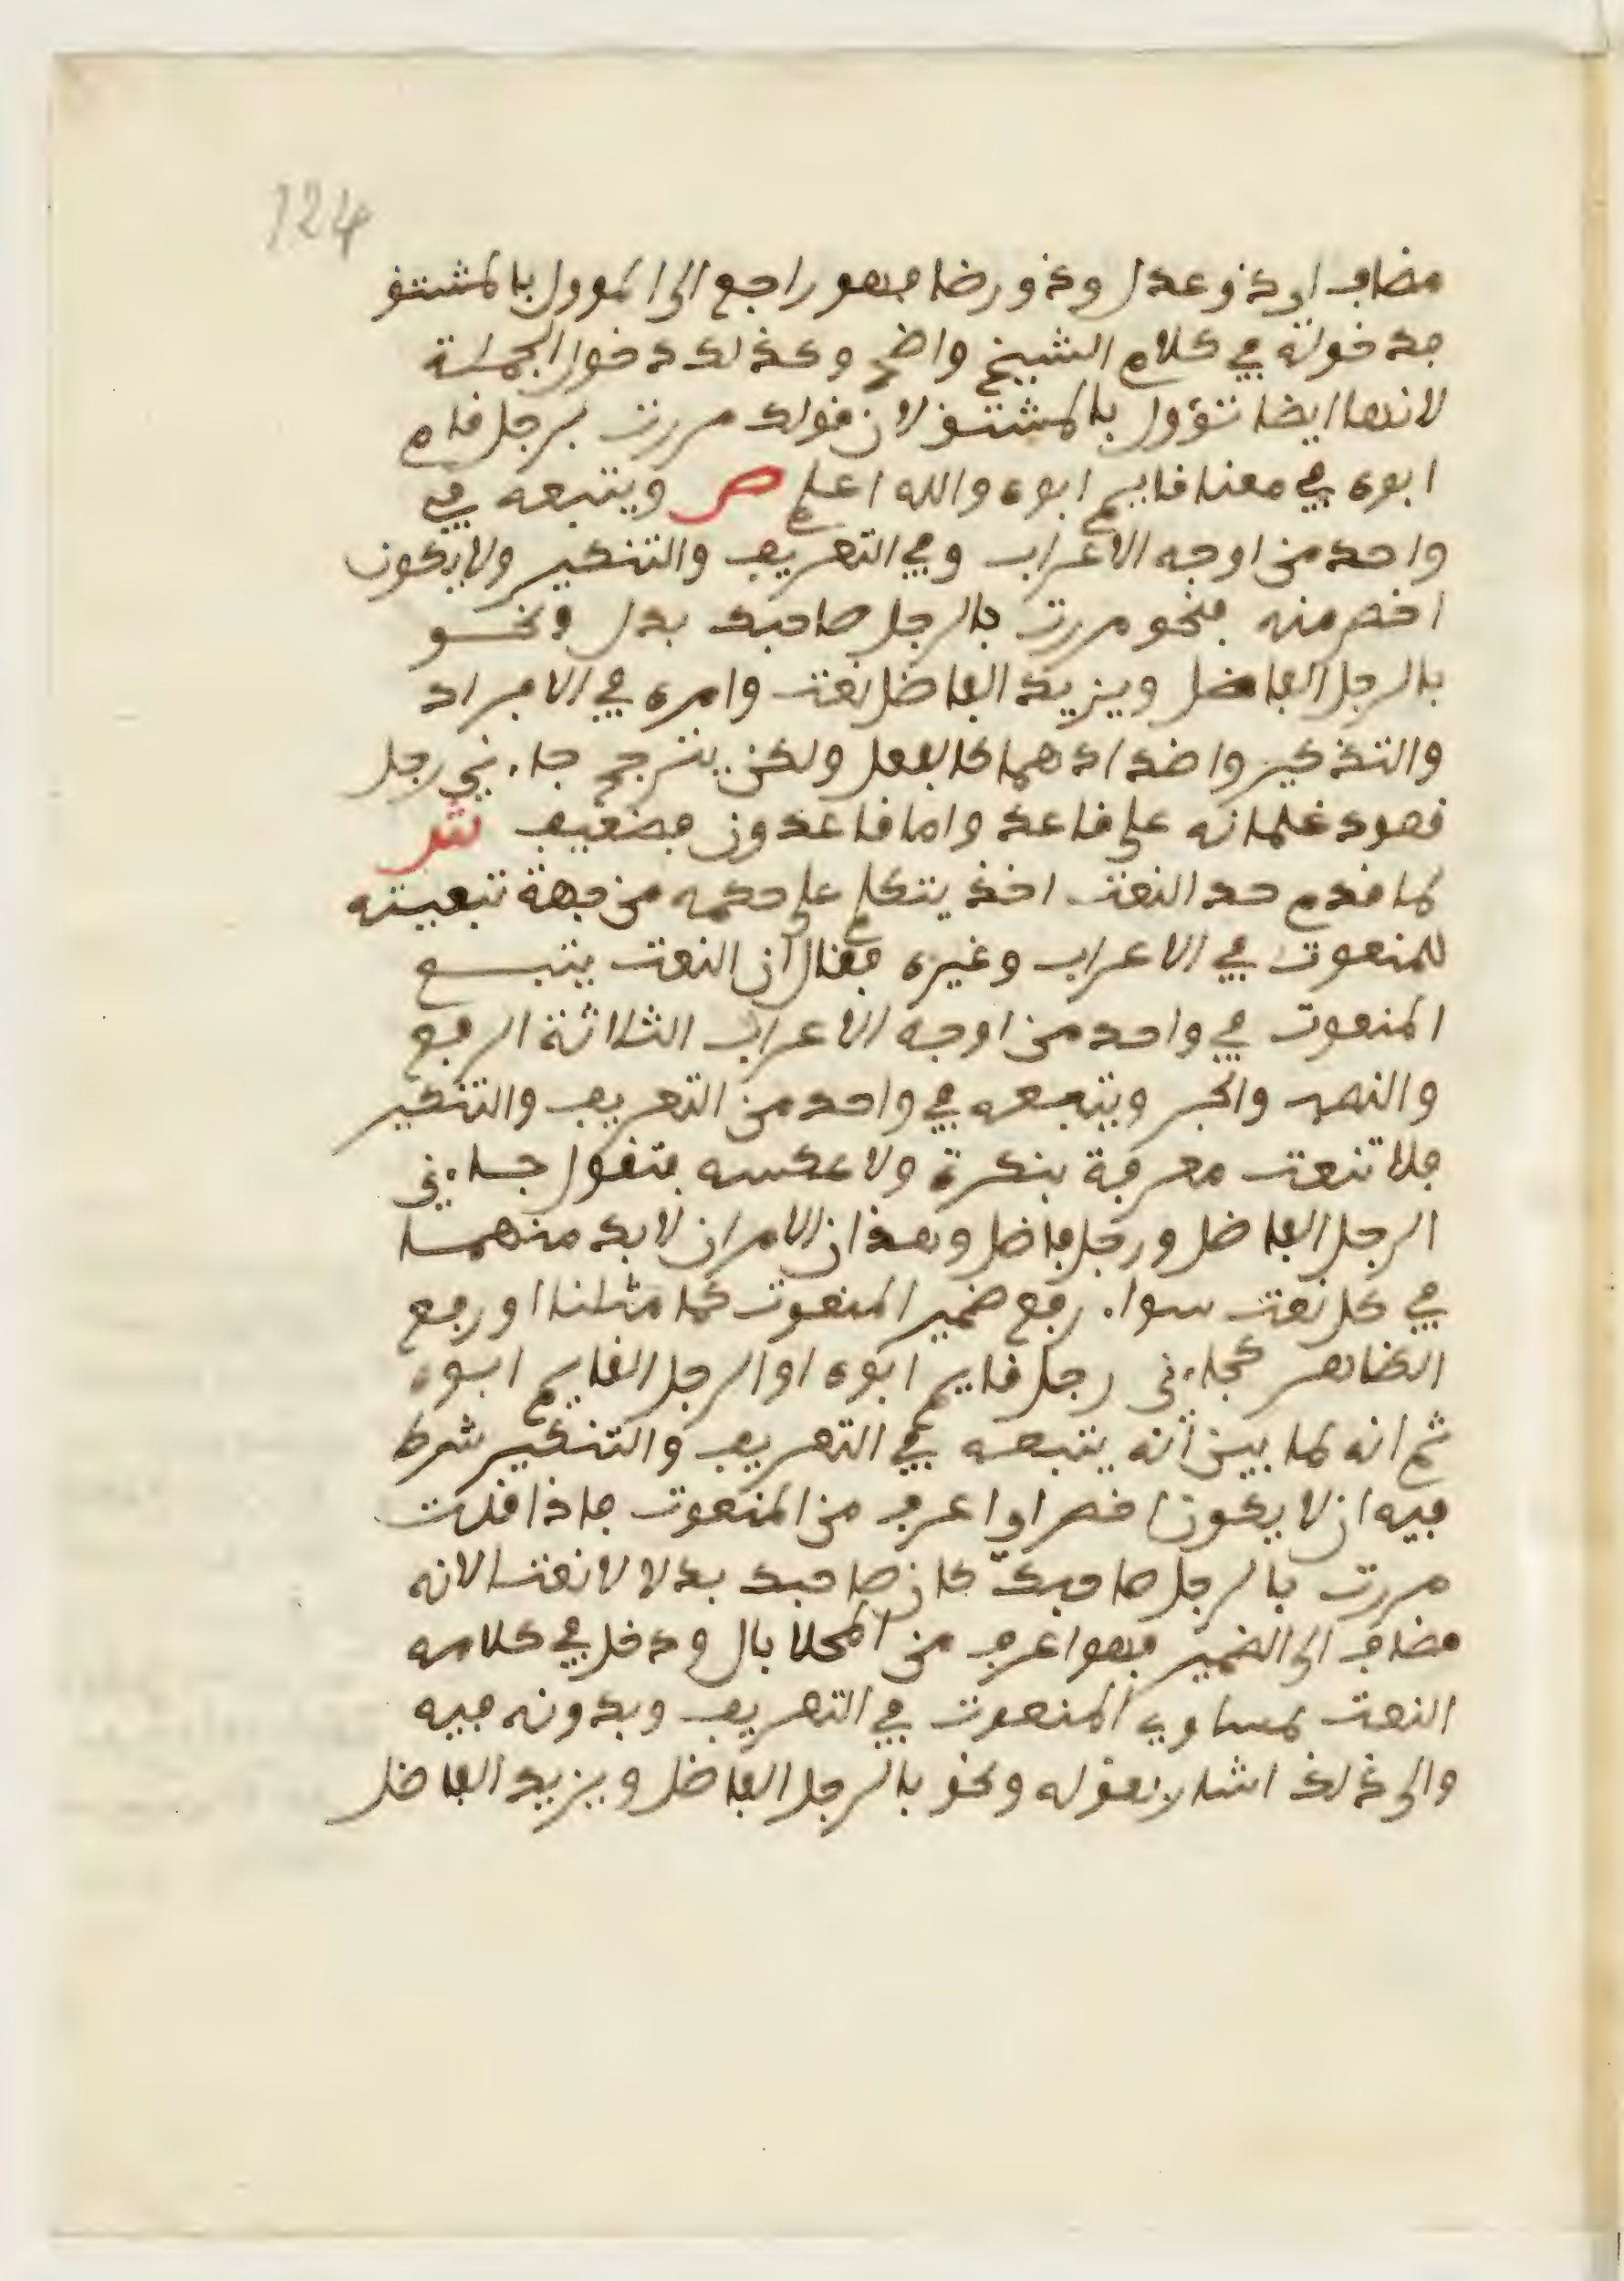 124
مضاف اي ذو عدل وذو رضا فهو راجع الى الموول بالمشتق
فدخوله في كلام الشيخ واضح وكذلك دخول الجملة
لانها ايضا تؤول بالمشتق لان قولك مررت برجل قام
ابوه في معنا قايم ابوه والله اعلم ص ويتبعه في
واحد من اوجه الاعراب وفي التعريف والتنكير ولا يكون
اخص منه فنحو مررت بالرجل صاحبك بدل ونحو
بالرجل الفاضل وبزيد الفاضل نعت وامره في الافراد
والتذكير واضدادهما كالفعل ولكن يترجح جاءني رجل
قعود غلمانه على قاعد واما قاعدون فضعيف ش
لما قدم حد النعت اخذ يتكلم على حكمه من جهة تبعيته
للمنعوت في الاعراب وغيره فقال ان النعت يتبع
المنعوت في واحد من اوجه الاعراب الثلاثة الرفع
والنصب والجر ويتبعه في واحد من التعريف والتنكير
فلا تنعت معرفة بنكرة ولا عكسه فتقول جاءني
الرجل الفاضل ورجل فاضل وهذان الامران لا بد منهما
في كل نعت سواء رفع ضمير المنعوت كما مثلنا او رفع
الظاهر كجاءني رجل قايم ابوه او الرجل القايم ابوه
ثم انه لما بين انه يتبعه في التعريف والتنكير شرط
فيه ان لا يكون اخص او اعرف من المنعوت فاذا قلت
مررت بالرجل صاحبك كان صاحبك بدلا لا نعتا لانه
مضاف الى الضمير فهو اعرف من المحلا بال ودخل في كلامه
النعت لمساوي المنعوت في التعريف وبدونه فيه
والى ذلك اشار بقوله ونحو بالرجل الفاضل وبزيد الفاضل